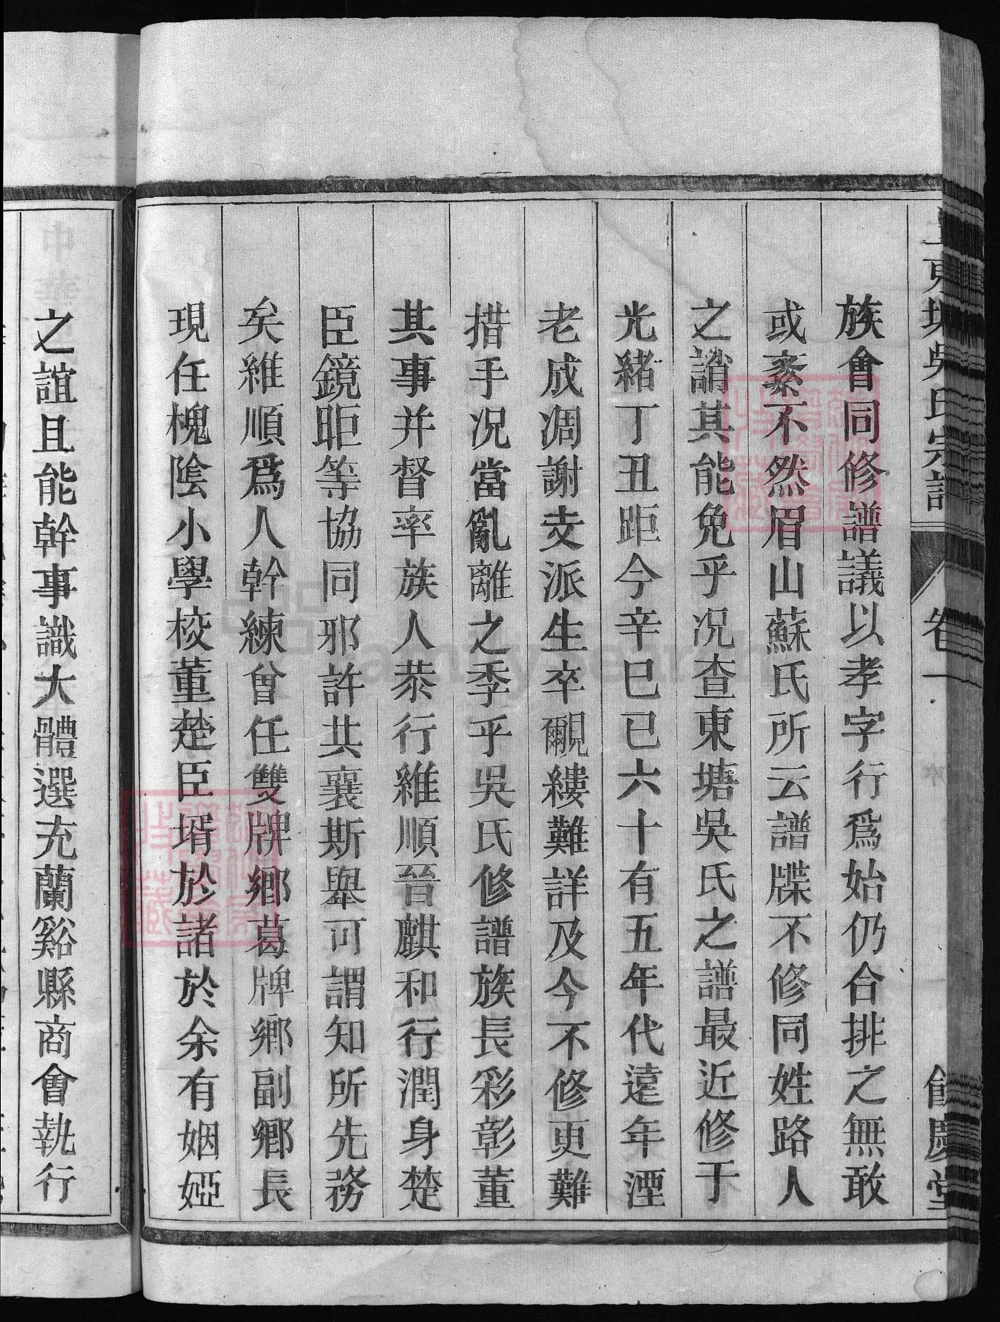 東塘吳氏宗譜 卷一 餘慶堂
族會同修譜議以孝字行爲始仍合排之無敢
或紊不然眉山蘇氏所云譜牒不修同姓路人
之誚其能免乎况查東塘吳氏之譜最近修于
光緒丁丑距今辛巳已六十有五年代遠年湮
老成凋謝支派生卒覼縷難詳及今不修更難
措手况當亂離之季乎吳氏修譜族長彩彰董
其事并督率族人恭行維順晉麒和行潤身楚
臣鏡昛等協同邪許共襄斯舉可謂知所先務
矣維順爲人幹練曾任雙牌鄉葛牌鄉副鄉長
現任槐陰小學校董楚臣壻於諸於余有姻婭
之誼且能幹事識大體選充蘭谿縣商會執行